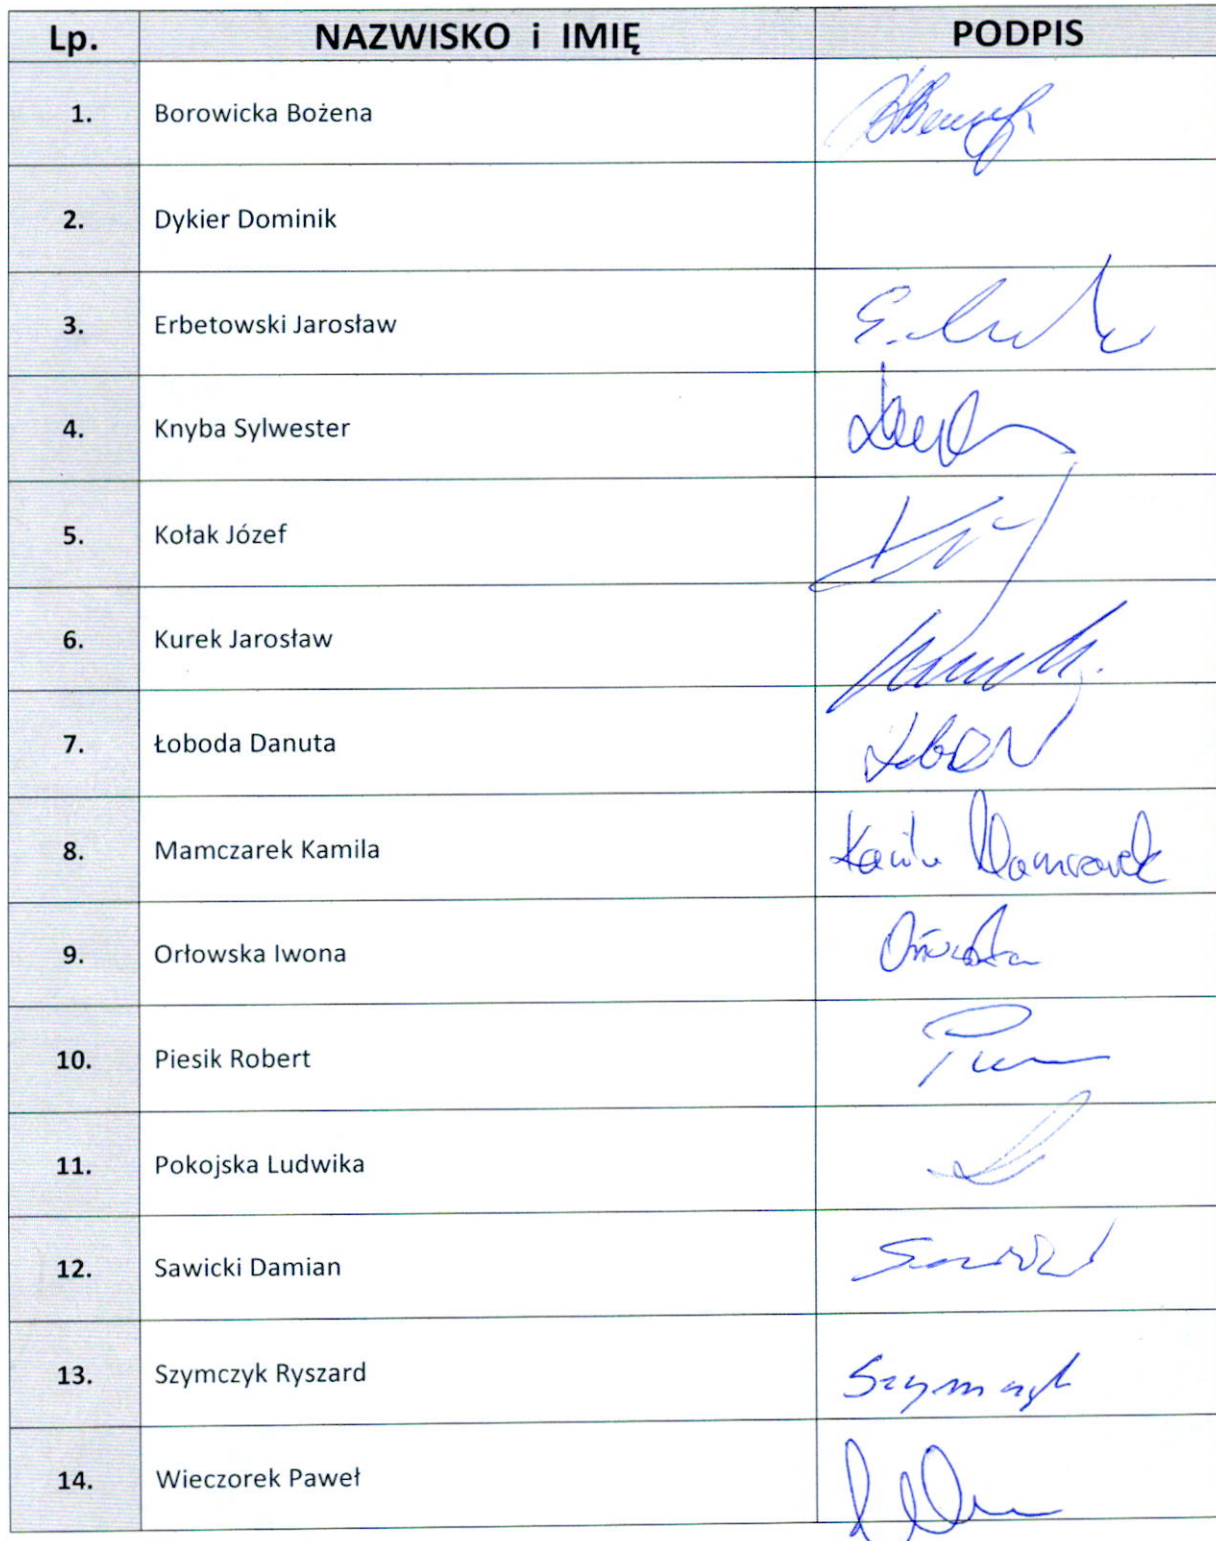 Lp. NAZWISKO i IMIĘ PODPIS
1. Borowicka Bożena
2. Dykier Dominik
3. Erbetowski Jarosław
4. Knyba Sylwester
5. Kołak Józef
6. Kurek Jarosław
7. Łoboda Danuta
8. Mamczarek Kamila Kamila Mamczarek
9. Orłowska Iwona
10. Piesik Robert
11. Pokojska Ludwika
12. Sawicki Damian
13. Szymczyk Ryszard Szymczyk
14. Wieczorek Paweł